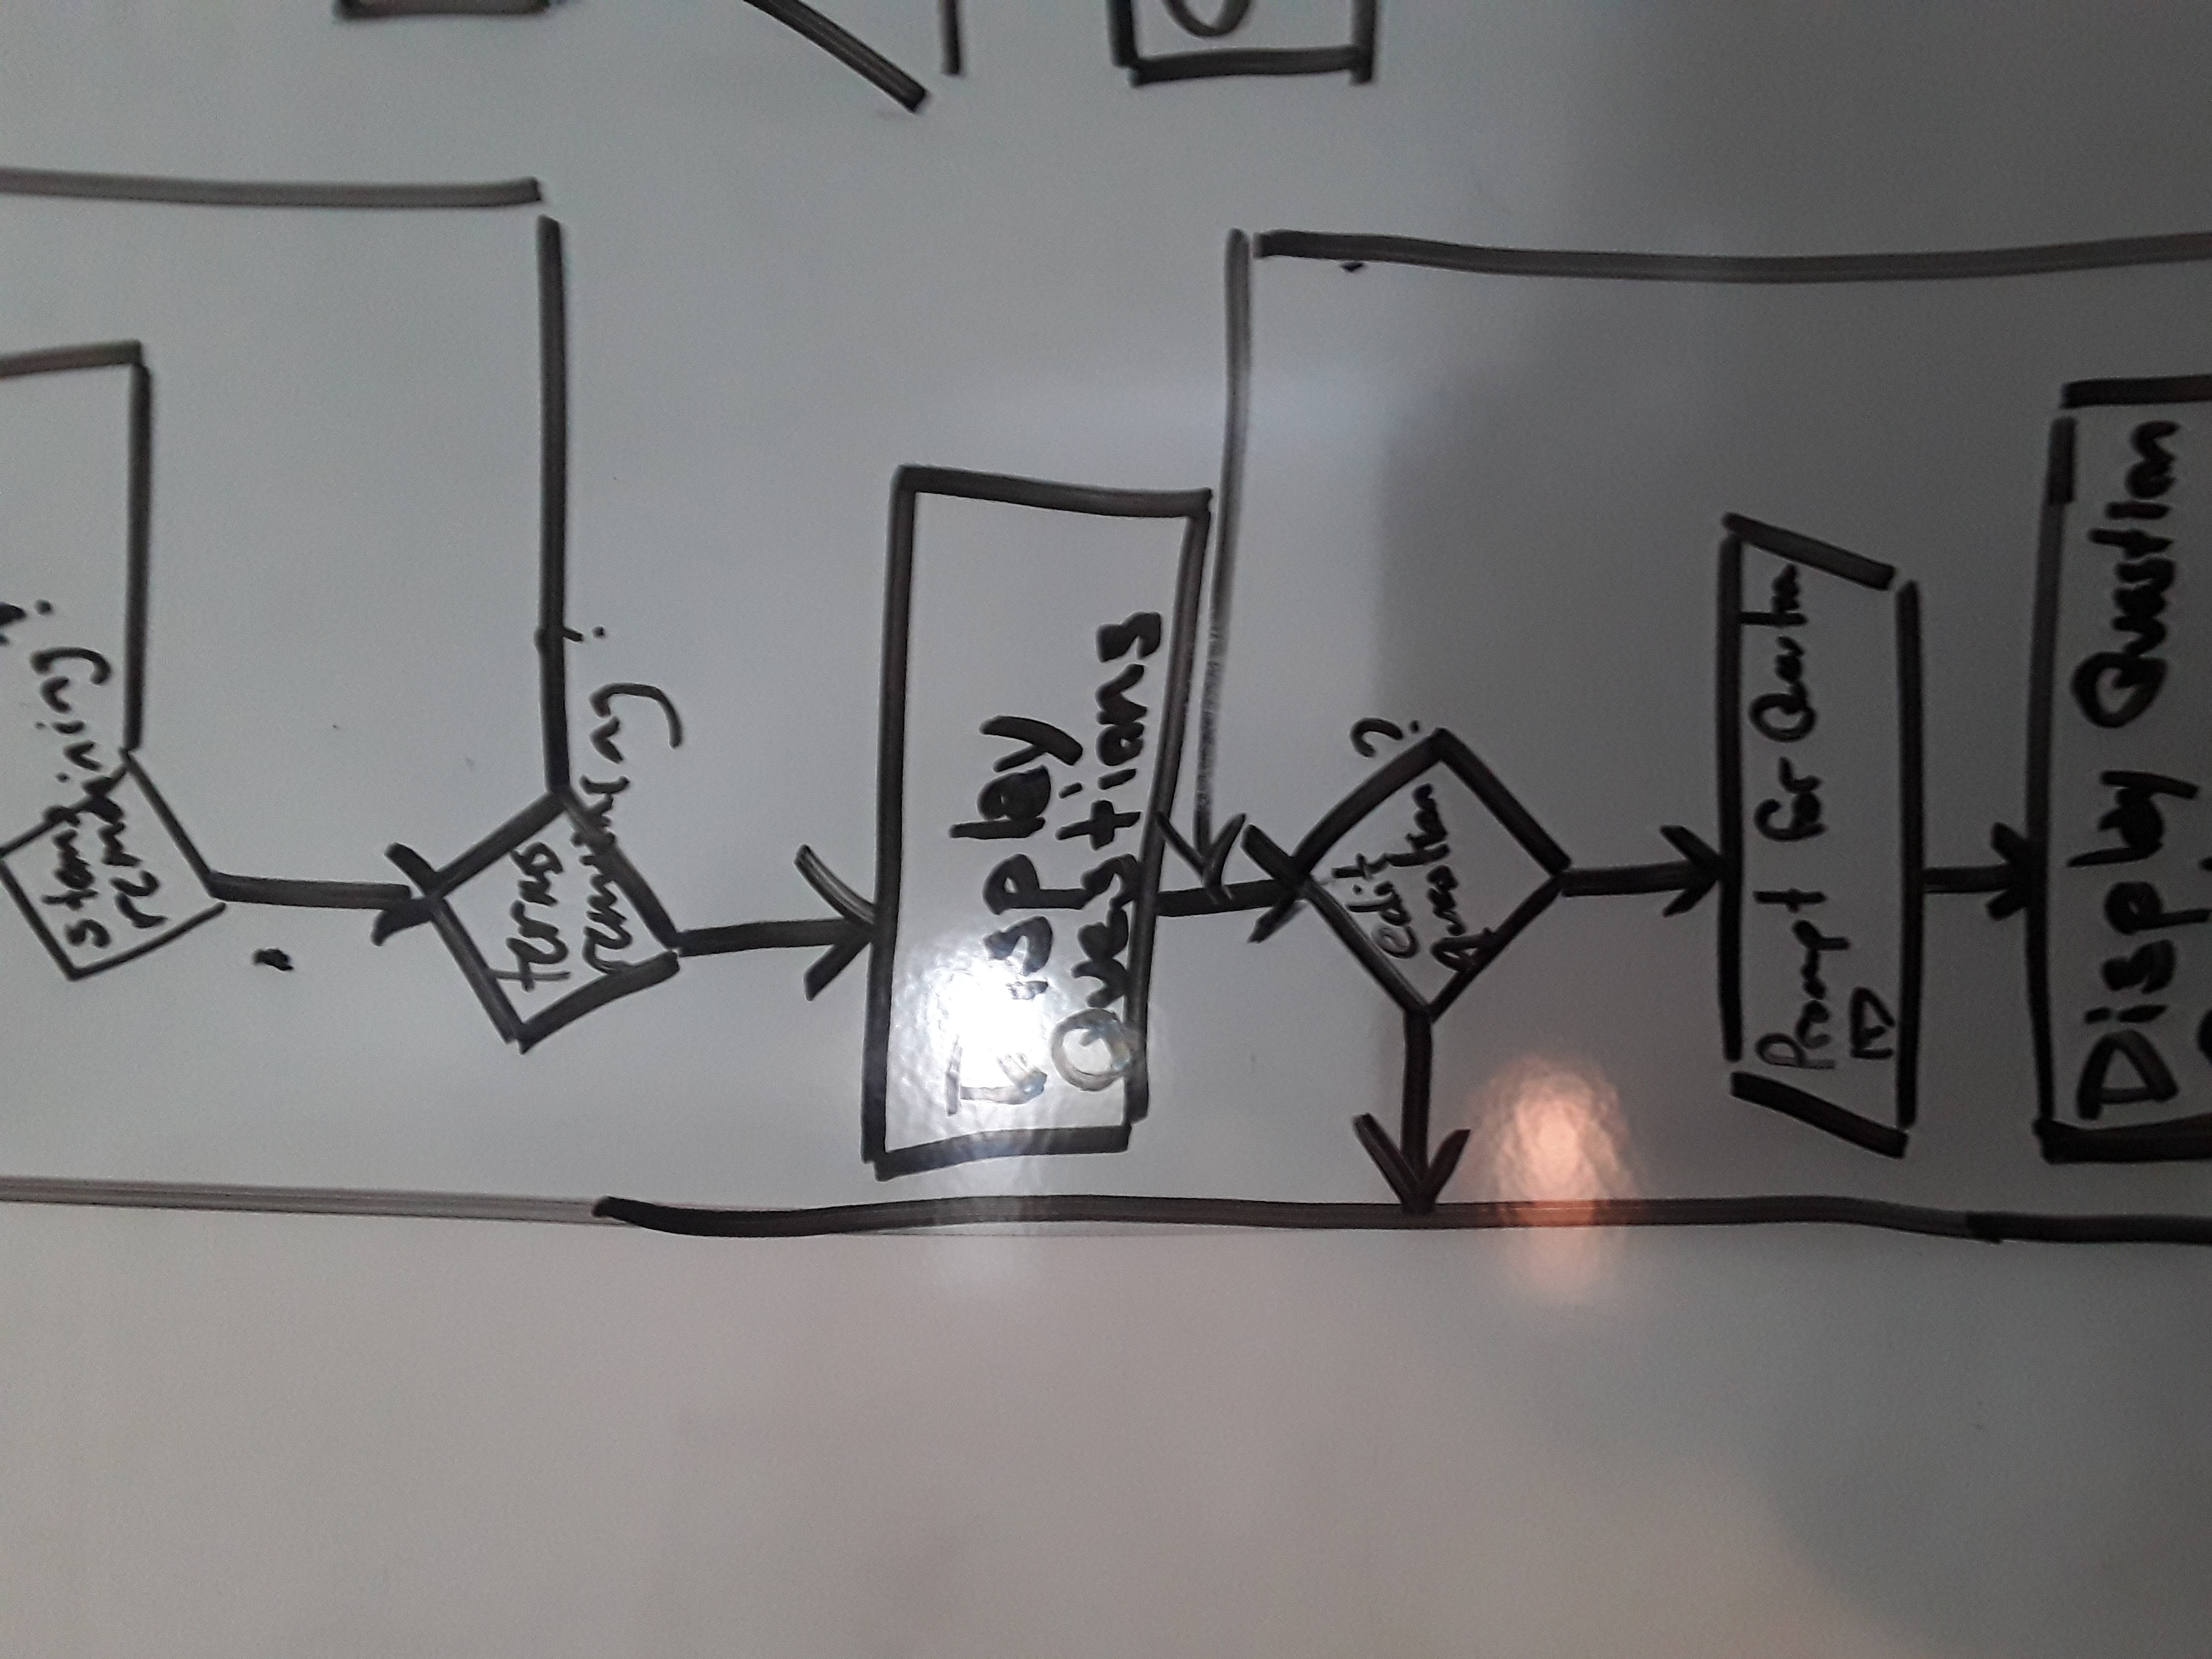 stems
remaining?
terms
remaining?
Display
Questions
edit
question ?
Prompt for Question
ID
Display Question